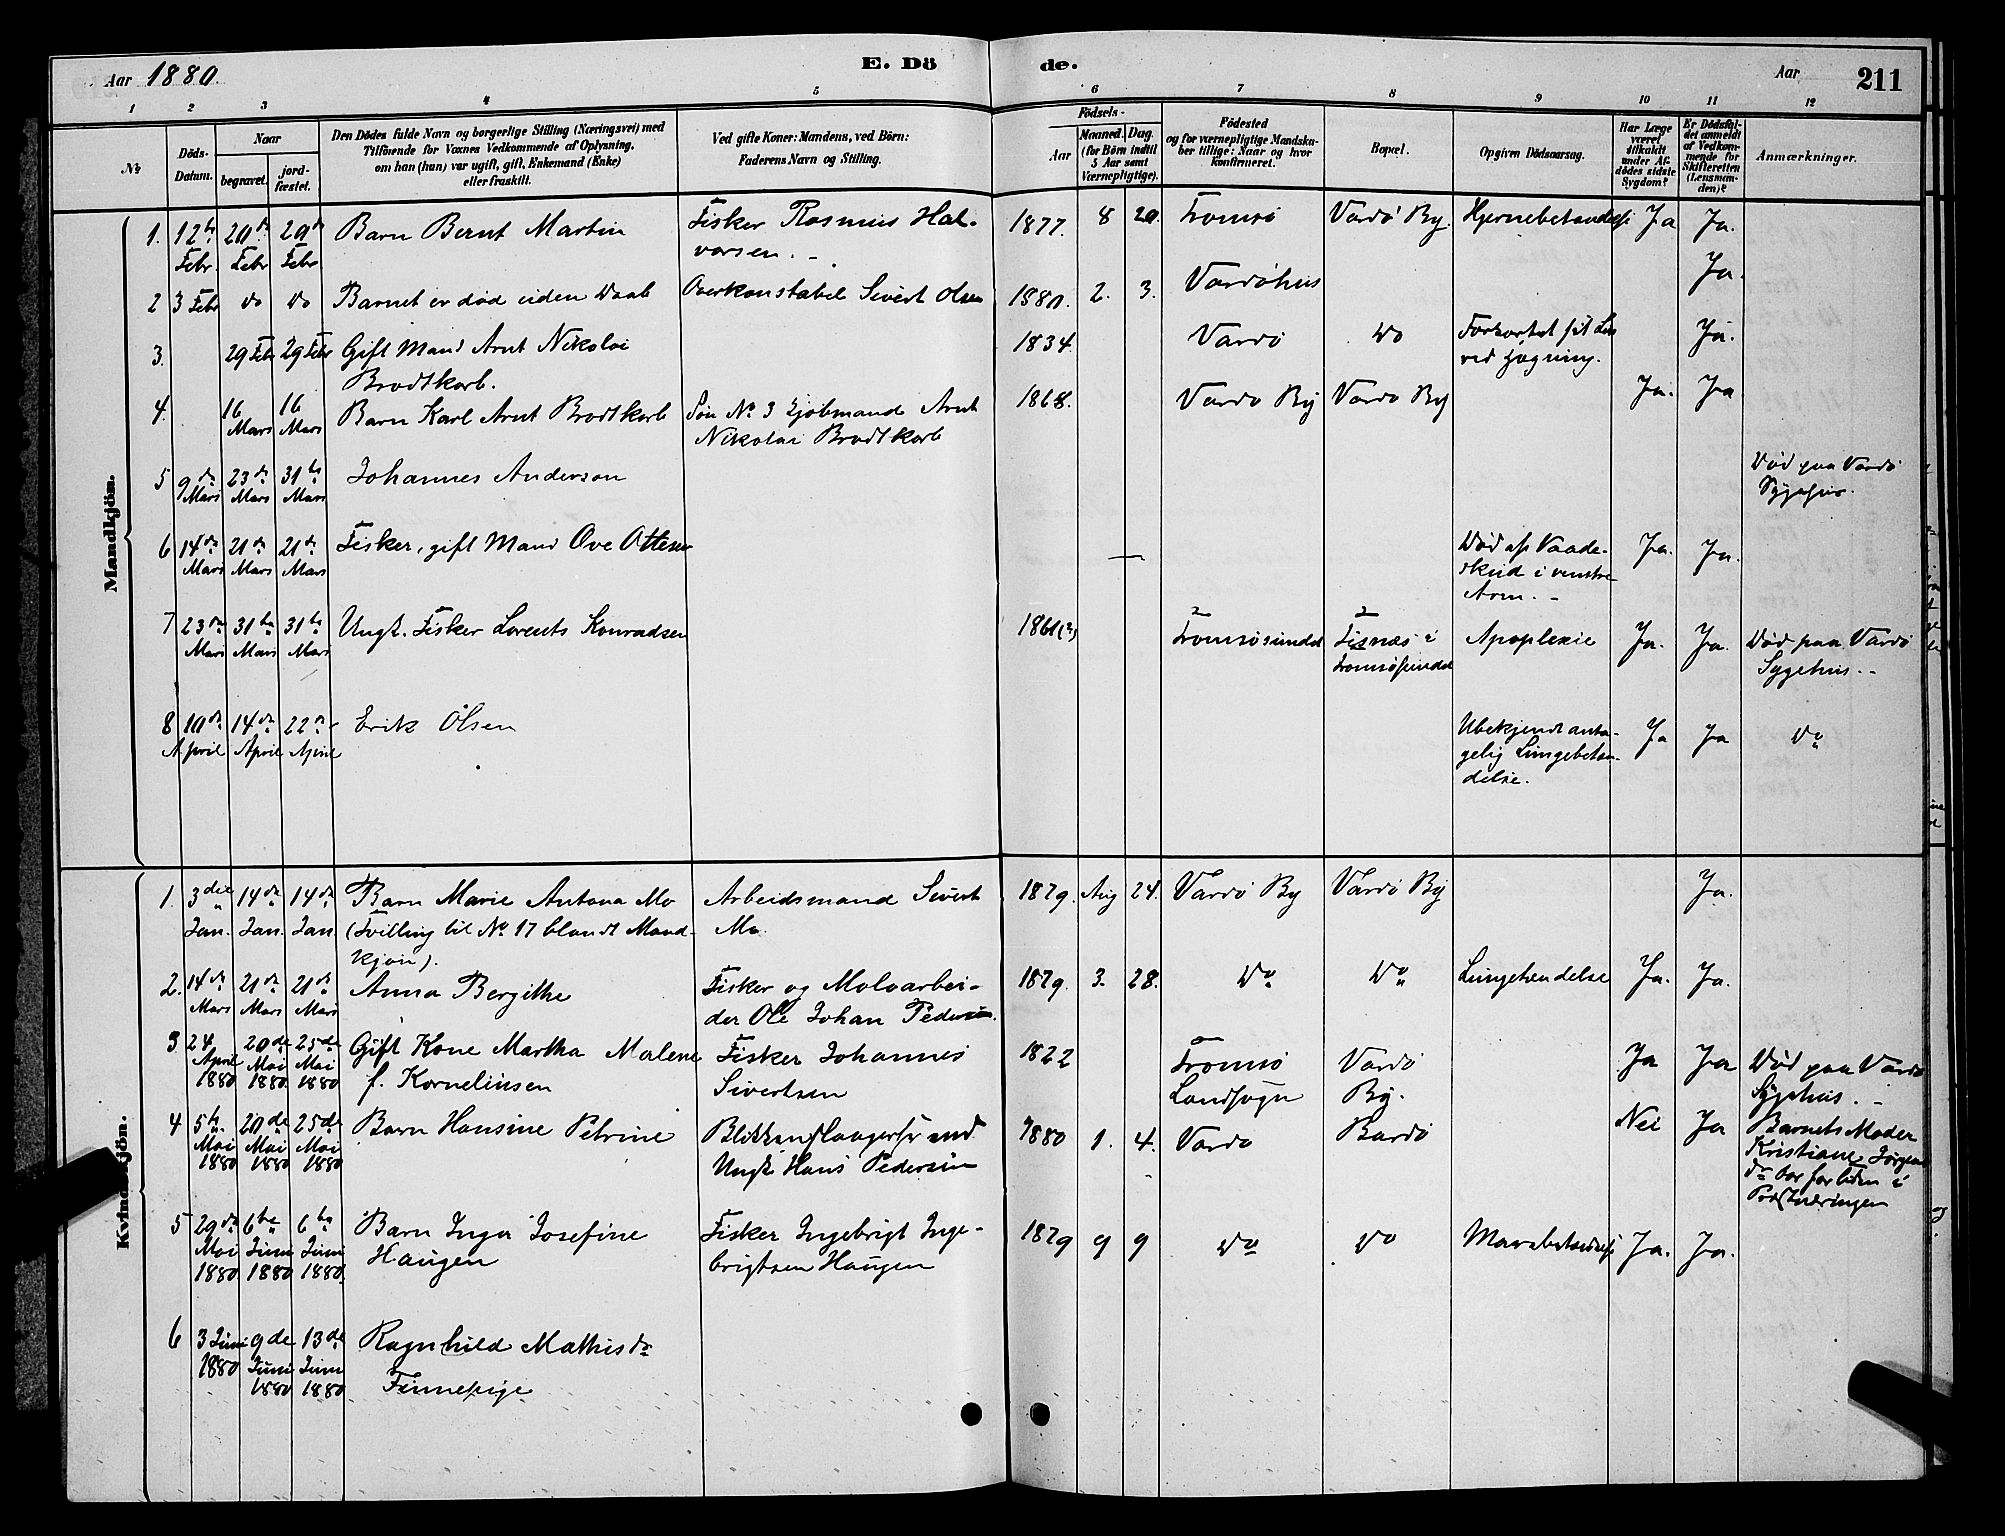 Aar 1880. E. Dö de. Aar 211
1 2 3 4 5 6 7 8 9 10 11 12
№ Döds-Datum. Naar begravet. jord-fæstet.
Den Dödes fulde Navn og borgerlige Stilling (Næringsvei) med
Tilföiende for Voxnes Vedkommende af Oplysning,
om han (hun) var ugift, gift, Enkemand (Enke)
eller fraskilt.
Ved gifte Koner: Mandens, ved Börn:
Faderens Navn og Stilling.
Födsels-
Aar Maaned. Dag.
(for Börn indtil
5 Aar samt
Værnepligtige).
Födested
og for værnepligtige Mandska-
ber tillige: Naar og hvor
konfirmeret.
Bopæl.
Opgiven Dödsaarsag.
Har Læge
været
tilkaldt
under Af-
dödes sidste
Sygdom?
Er Dödsfal-
det anmeldt
af Vedkom-
mende for
Skifteretten
(Lensman-
den)?
Anmærkninger.
Mandkjön.
1. 12te Febr. 20de Febr 29de Febr Barn Bernt Martin Fisker Rasmus Hal-
varsen. 1877. 8 20. Tromsö Vardö By. Ja Ja.
2 3 Febr do do Barnet er död uden Daab Overkonstabel Sivert Olsen 1880. 2. 3. Vardöhus Ja.
3. 29 Febr 29 Febr Gift Mand Arnt Nikolai
Brodtkorb. 1834 Vardö do Forkortet sit Liv
ved Hægning. Ja.
4. 16 Mars 16 Mars Barn Karl Arnt Brodtkorb Sön No 3 Kjöbmand Arnt
Nikolai Brodtkorb 1868. Vardö By Vardö By Ja. Ja
5 9de Mars 23de Mars 31te Mars Johannes Anderson Död paa Vardö
Sygehus.
6 14de Mars 21de Mars 21de Mars Fisker, gift Mand Ove Ottesen — Död af Vaade-
skud i venstre
Arm. Ja. Ja.
7 23de Mars 31te Mars 31te Mars Ungk. Fisker Lorents Konradsen 1861(?) Tromsösundet Fisnæs i
Tromsösundet Apoplexie Ja. Ja. Död paa Vardö
Sygehus.
8 10de April 14de April 22de April Erik Olsen Ubekjendt anta-
gelig Lungebetæn-
delse. Ja Ja do
Kvindekjön.
1. 3die Jan. 14de Jan. 14de Jan Barn Marie Antona Mo
(Tvilling til No 17 blandt Mand-
kjön). Arbeidsmand Sivert
Mo. 1879. Aug 24. Vardö By Vardö By Ja.
2. 14de Mars 21de Mars 21de Mars Anna Bergithe Fisker og Moloarbei-
der Ole Johan Pedersen. 1879. 3. 28. do do Ja. Ja.
3 24 April 1880 20de Mai 1880. 25de Mai 1880 Gift Kone Martha Malene
f. Kornelinsen Fisker Johannes
Sivertsen 1822 Tromsö
Landsogn Vardö
By. Ja Ja Död paa Vardö
Sygehus.
4 5te Mai 1880 20de Mai 1880 25de Mai 1880 Barn Hansine Petrine
Ungk. Hans Pedersen 1880 1. 4. Vardö Vardö Nei Ja Barnets Moder
Kristiane
5 29de Mai 1880 6te Juni 1880 6te Juni 1880. Barn Inga Josefine
Haugen Fisker Ingebrigt Inge-
brigtsen Haugen 1879 9 9 do do Ja. Ja.
6 3 Juni 1880 9de Juni 1880 13de Juni 1880 Ragnhild Mathisdr
Finnepige